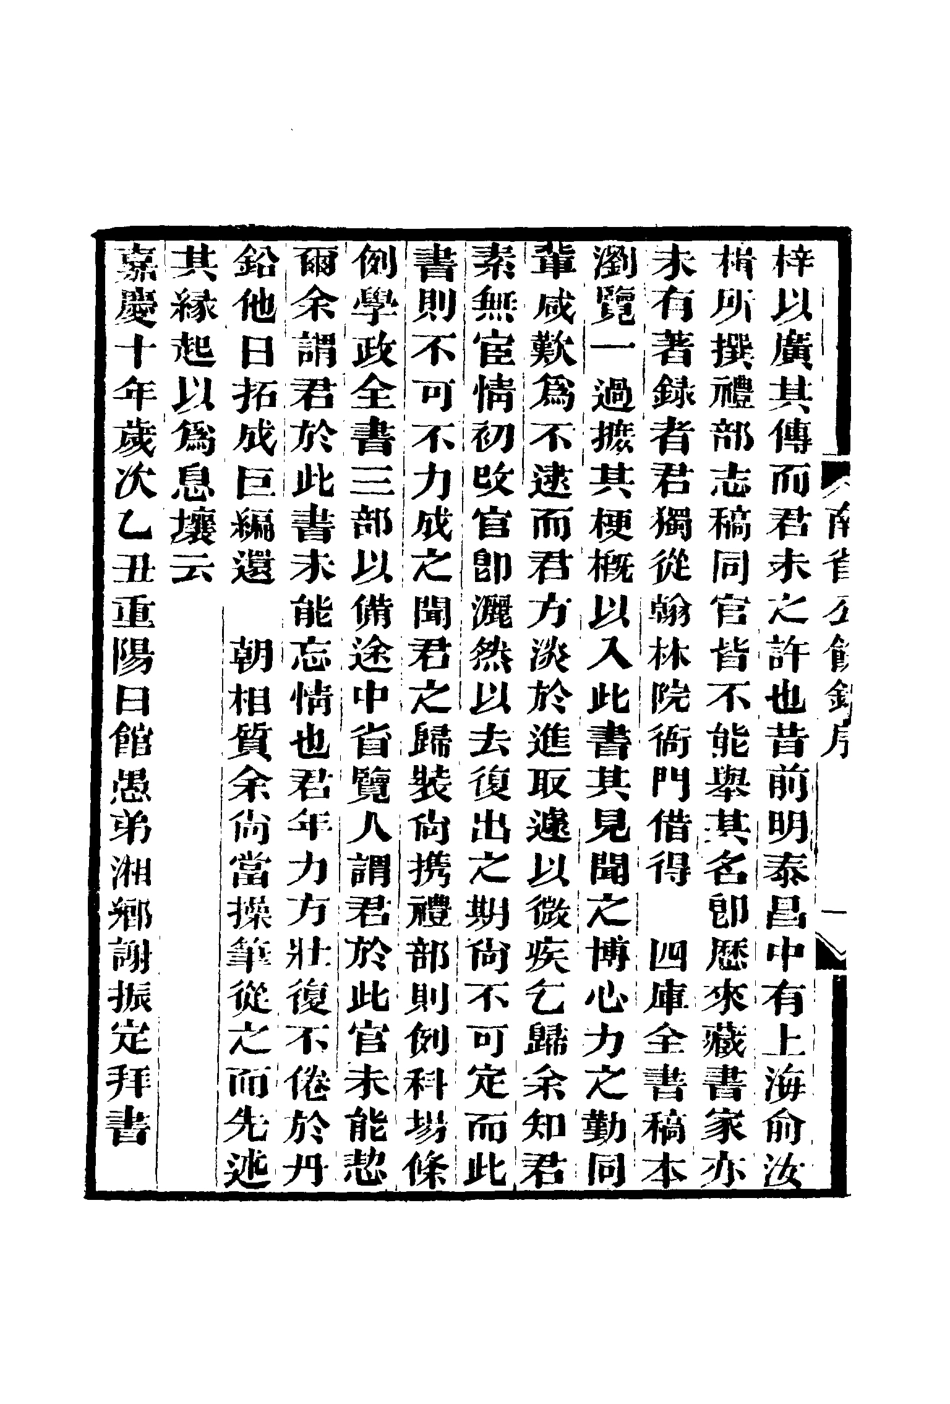 南省公餘錄序
一
梓以廣其傳而君未之許也昔前明泰昌中有上海俞汝
楫所撰禮部志稿同官皆不能舉其名卽歷來藏書家亦
未有著録者君獨從翰林院衙門借得 四庫全書稿本
瀏覽一過摭其梗概以入此書其見聞之博心力之勤同
輩咸歎爲不逮而君方淡於進取遽以微疾乞歸余知君
素無宦情初改官卽灑然以去復出之期尙不可定而此
書則不可不力成之聞君之歸裝尙携禮部則例科場條
例學政全書三部以備途中省覽人謂君於此官未能恝
爾余謂君於此書未能忘情也君年力方壯復不倦於丹
鉛他日拓成巨編還 朝相質余尙當操筆從之而先述
其緣起以爲息壤云
嘉慶十年歲次乙丑重陽日館愚弟湘鄉謝振定拜書